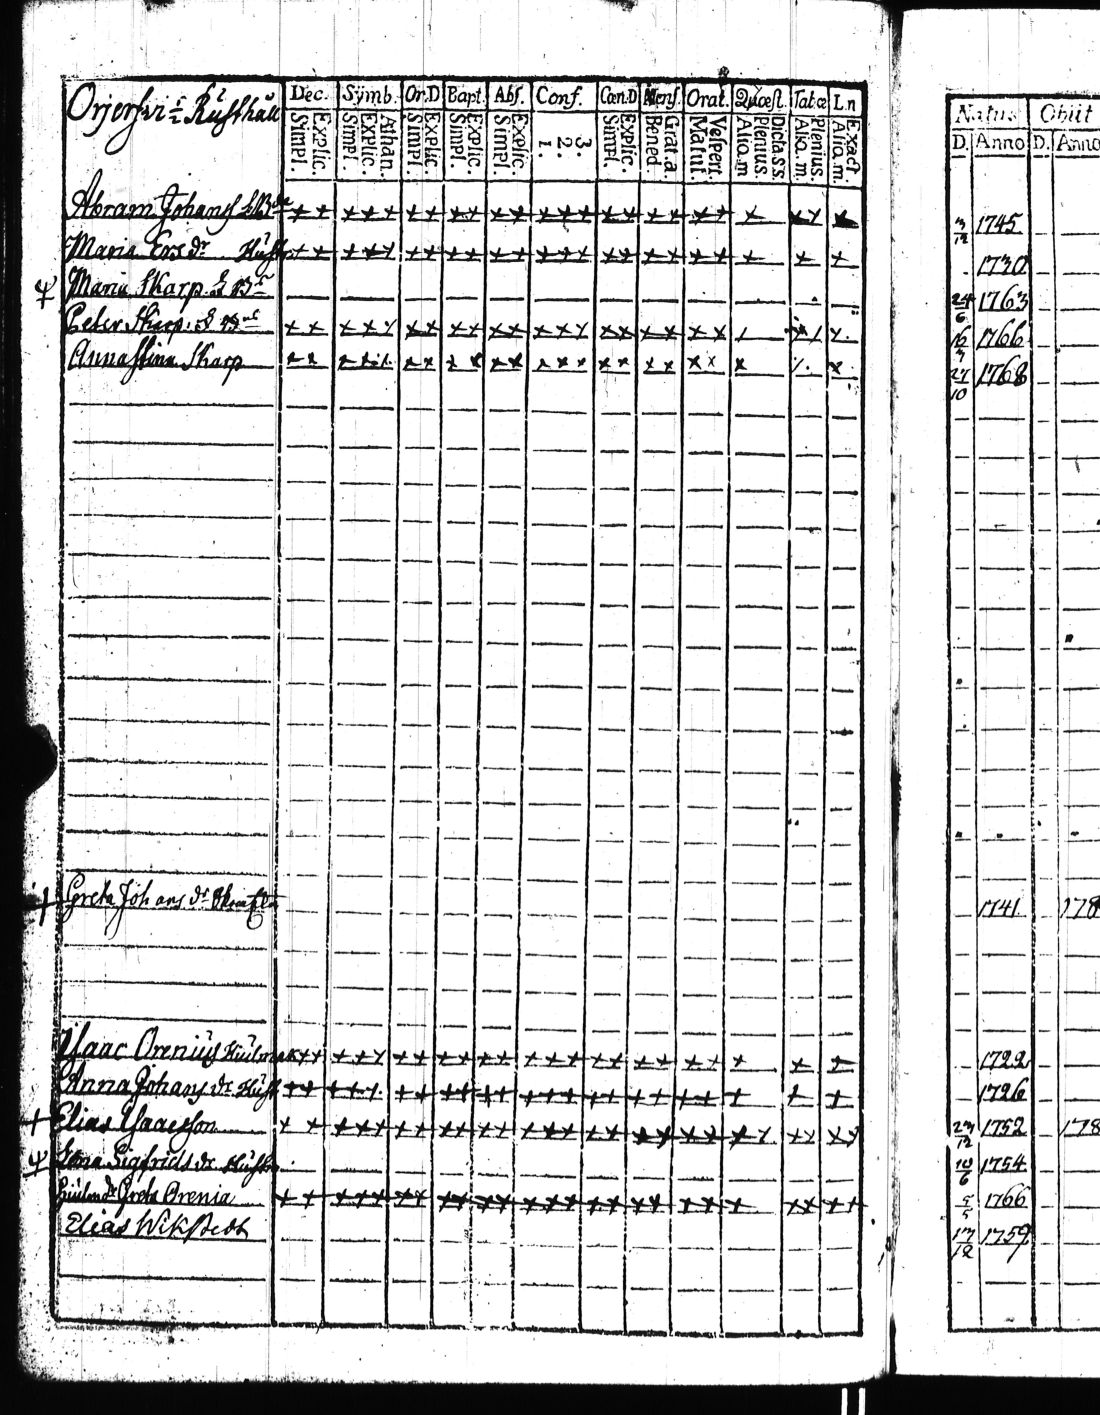 Dec. Symb. Or.D Bapt. Abs. Conf. Cœn.D Mens. Orat. Quæst. Tabæ Ln
Natus Obiit
Explic. Simpl. Athan. Explic. Simpl. Explic. Simpl. Explic. Simpl. Explic. Simpl. 3. 2. 1. Explic. Simpl. Grat.a. Bened. Vespert. Matut. Dicta.s.s. Plenius. Alio.m Plenius. Alio.m. Exact. Alio.m.
D. Anno D. Anno
Abram Johans
3/12 1745
Maria Ers dr Hust
1730
Maria Skarp
24/6 1763
Peter Skarp
16 1766
Anna Stina Skarp
27/10 1768
Greta Johans dr
1741 178
Isaac Orenius
1722
Anna Johans dr Hust
1726
Elias Isaacsson
23/12 1752 178
Sigfrids dr Hustr
10/6 1754
Greta Orenia
5/5 1766
Elias Wikstedt
1759